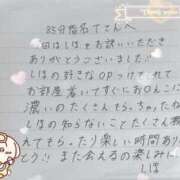 85分指名てさんへ
今日はしほをお誘いいただき
ありがとうございました!!
しほの好きなOPつけてくれて
お部屋着いてすぐにおOんこに
濃いのたくさんもらっちゃたね
しほの知らないことたくさん教
えてもらったり楽しい時間あり
とう!! また会えるの楽しみに
しほ